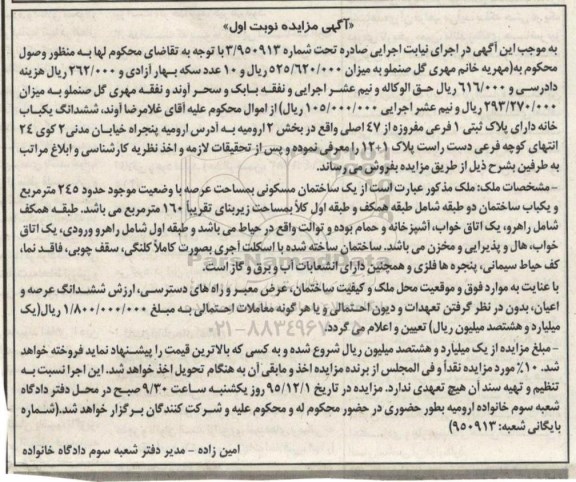 «آگهی مزایده نوبت اول»
به موجب این آگهی در اجرای نیابت اجرایی صادره تحت شماره ۳/۹۵۰۹۱۳ با توجه به تقاضای محکوم لها به منظور وصول
محکوم به(مهریه خانم مهری گل صنملو به میزان ۵۲۵/۶۲۰/۰۰۰ ریال و ۱۰ عدد سکه بهار آزادی و ۲۶۲/۰۰۰ ریال هزینه
دادرسی و ۶۱۶/۰۰۰ ریال حق الوکاله و نیم عشر اجرایی و نفقه بابک و سحر آوند و نفقه مهری گل صنملو به میزان
۲۹۳/۲۷۰/۰۰۰ ریال و نیم عشر اجرایی ۱۰۵/۰۰۰/۰۰۰ ریال) از اموال محکوم علیه آقای غلامرضا آوند، ششدانگ یکباب
خانه دارای پلاک ثبتی ۱ فرعی مفروزه از ۴۷ اصلی واقع در بخش ۲ ارومیه به آدرس ارومیه پنجراه خیابان مدنی ۲ کوی ۲۴
انتهای کوچه فرعی دست راست پلاک ۱۲۰۱ را معرفی نموده و پس از تحقیقات لازمه و اخذ نظریه کارشناسی و ابلاغ مراتب
به طرفین بشرح ذیل از طریق مزایده بفروش می رساند.
- مشخصات ملک: ملک مذکور عبارت است از یک ساختمان مسکونی بمساحت عرصه با وضعیت موجود حدود ۲۴۵ مترمربع
و یکباب ساختمان دو طبقه شامل طبقه همکف و طبقه اول کلاً بمساحت زیربنای تقریباً ۱۶۰ مترمربع می باشد. طبقه همکف
شامل راهرو، یک اتاق خواب، آشپزخانه و حمام بوده و توالت واقع در حیاط می باشد و طبقه اول شامل راهرو ورودی، یک اتاق
خواب، هال و پذیرایی و مخزن می باشد. ساختمان ساخته شده با اسکلت آجری بصورت کاملاً کلنگی، سقف چوبی، فاقد نما،
کف حیاط سیمانی، پنجره ها فلزی و همچنین دارای انشعابات آب و برق و گاز است.
با عنایت به موارد فوق و موقعیت محل ملک و کیفیت ساختمان، عرض معبر و راه های دسترسی، ارزش ششدانگ عرصه و
اعیان، بدون در نظر گرفتن تعهدات و دیون احتمالی و یا هر گونه معاملات احتمالی به مبلغ ۱/۸۰۰/۰۰۰/۰۰۰ ریال(یک
میلیارد و هشتصد میلیون ریال) تعیین و اعلام می گردد.
- مبلغ مزایده از یک میلیارد و هشتصد میلیون ریال شروع شده و به کسی که بالاترین قیمت را پیشنهاد نماید فروخته خواهد
شد. ۱۰٪ مورد مزایده نقداً و فی المجلس از برنده مزایده اخذ و مابقی آن به هنگام تحویل اخذ خواهد شد. این اجرا نسبت به
تنظیم و تهیه سند آن هیچ تعهدی ندارد. مزایده در تاریخ ۹۵/۱۲/۱ روز یکشنبه ساعت ۹/۳۰ صبح در محل دفتر دادگاه
شعبه سوم خانواده ارومیه بطور حضوری در حضور محکوم له و محکوم علیه و شرکت کنندگان برگزار خواهد شد.(شماره
بایگانی شعبه: ۹۵۰۹۱۳)
امین زاده - مدیر دفتر شعبه سوم دادگاه خانواده
ParsNamadData
۰۲۱-۸۸۳۴۹۶۷۰